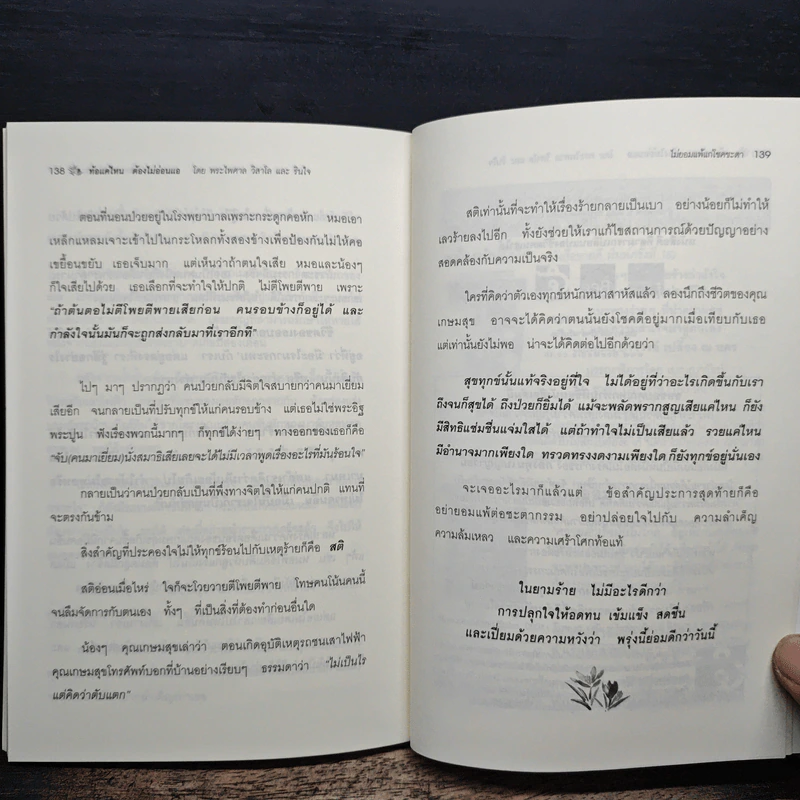 138 ท้อแค่ไหน ต้องไม่อ่อนแอ โดย พระไพศาล วิสาโล และ รินใจ
ตอนที่นอนป่วยอยู่ในโรงพยาบาลเพราะกระดูกคอหัก หมอเอา
เหล็กแหลมเจาะเข้าไปในกระโหลกทั้งสองข้างเพื่อป้องกันไม่ให้คอ
เขยื้อนขยับ เธอเจ็บมาก แต่เห็นว่าถ้าตนใจเสีย หมอและน้องๆ
ก็ใจเสียไปด้วย เธอเลือกที่จะทำใจให้ปกติ ไม่ตีโพยตีพาย เพราะ
“ถ้าต้นตอไม่ตีโพยตีพายเสียก่อน คนรอบข้างก็อยู่ได้ และ
กำลังใจนั้นมันก็จะถูกส่งกลับมาที่เราอีกที”
ไปๆ มาๆ ปรากฏว่า คนป่วยกลับมีจิตใจสบายกว่าคนมาเยี่ยม
เสียอีก จนกลายเป็นที่ปรับทุกข์ให้แก่คนรอบข้าง แต่เธอไม่ใช่พระอิฐ
พระปูน ฟังเรื่องพวกนี้มากๆ ก็ทุกข์ได้ง่ายๆ ทางออกของเธอก็คือ
“จับ(คนมาเยี่ยม)นั่งสมาธิเสียเลยจะได้ไม่มีเวลาพูดเรื่องอะไรที่มันร้อนใจ”
กลายเป็นว่าคนป่วยกลับเป็นที่พึ่งทางจิตใจให้แก่คนปกติ แทนที่
จะตรงกันข้าม
สิ่งสำคัญที่ประคองใจไม่ให้ทุกข์ร้อนไปกับเหตุร้ายก็คือ สติ
สติอ่อนเมื่อไหร่ ใจก็จะโวยวายตีโพยตีพาย โทษคนโน้นคนนี้
จนลืมจัดการกับตนเอง ทั้งๆ ที่เป็นสิ่งที่ต้องทำก่อนอื่นใด
น้องๆ คุณเกษมสุขเล่าว่า ตอนเกิดอุบัติเหตุรถชนเสาไฟฟ้า
คุณเกษมสุขโทรศัพท์บอกที่บ้านอย่างเรียบๆ ธรรมดาว่า “ไม่เป็นไร
แต่คิดว่าตับแตก”
ไม่ยอมแพ้แก่โชคชะตา 139
สติเท่านั้นที่จะทำให้เรื่องร้ายกลายเป็นเบา อย่างน้อยก็ไม่ทำให้
เลวร้ายลงไปอีก ทั้งยังช่วยให้เราแก้ไขสถานการณ์ด้วยปัญญาอย่าง
สอดคล้องกับความเป็นจริง
ใครที่คิดว่าตัวเองทุกข์หนักหนาสาหัสแล้ว ลองนึกถึงชีวิตของคุณ
เกษมสุข อาจจะได้คิดว่าตนนั้นยังโชคดีอยู่มากเมื่อเทียบกับเธอ
แต่เท่านั้นยังไม่พอ น่าจะได้คิดต่อไปอีกด้วยว่า
สุขทุกข์นั้นแท้จริงอยู่ที่ใจ ไม่ได้อยู่ที่ว่าอะไรเกิดขึ้นกับเรา
ถึงจนก็สุขได้ ถึงป่วยก็ยิ้มได้ แม้จะพลัดพรากสูญเสียแค่ไหน ก็ยัง
มีสิทธิแช่มชื่นแจ่มใสได้ แต่ถ้าทำใจไม่เป็นเสียแล้ว รวยแค่ไหน
มีอำนาจมากเพียงใด ทรวดทรงงดงามเพียงใด ก็ยังทุกข์อยู่นั่นเอง
จะเจออะไรมาก็แล้วแต่ ข้อสำคัญประการสุดท้ายก็คือ
อย่ายอมแพ้ต่อชะตากรรม อย่าปล่อยใจไปกับ ความลำเค็ญ
ความล้มเหลว และความเศร้าโศกท้อแท้
ในยามร้าย ไม่มีอะไรดีกว่า
การปลุกใจให้อดทน เข้มแข็ง สดชื่น
และเปี่ยมด้วยความหวังว่า พรุ่งนี้ย่อมดีกว่าวันนี้